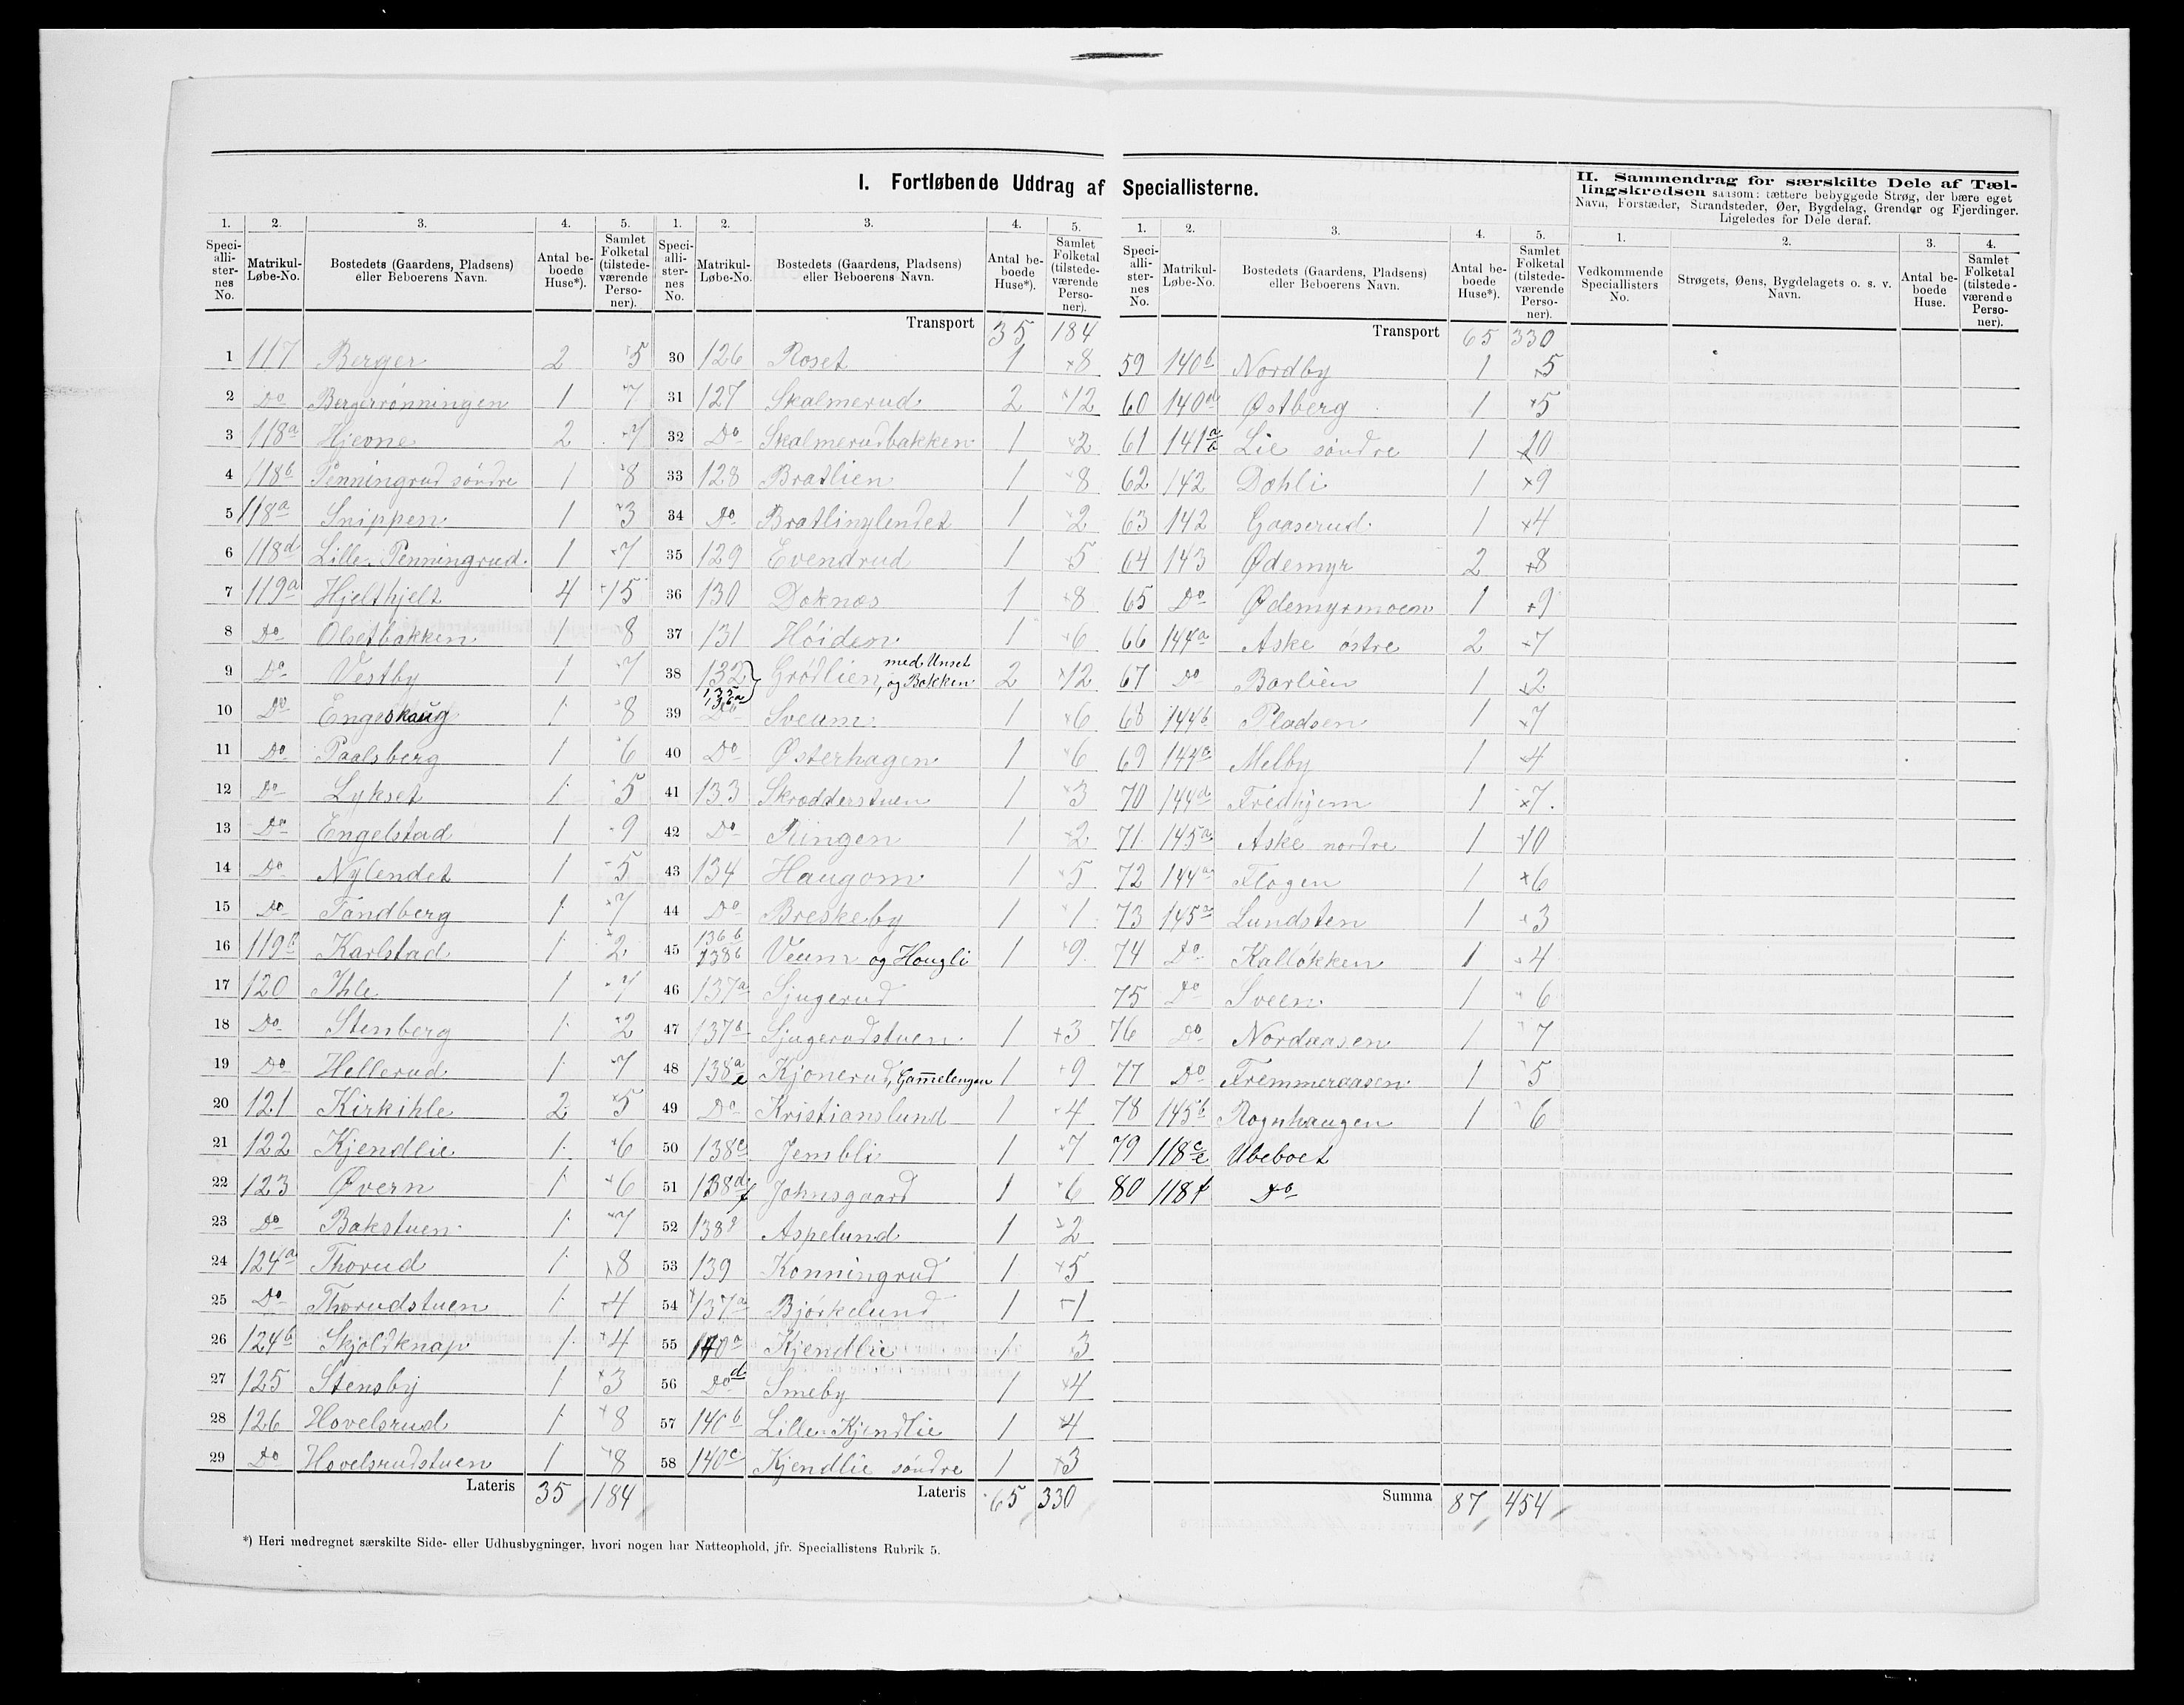 I. Fortløbende Uddrag af Speciallisterne.
II. Sammendrag for særskilte Dele af Tæl-
lingskredsen saasom: tættere bebyggede Strøg, der bære eget
Navn, Forstæder, Strandsteder, Øer, Bygdelag, Grender og Fjerdinger.
Ligeledes for Dele deraf.
1. 2. 3. 4. 5.
Speci-alli-ster-nes No. Matrikul-Løbe-No. Bostedets (Gaardens, Pladsens) eller Beboerens Navn. Antal be-boede Huse*). Samlet Folketal (tilstede-værende Perso-ner).
1 117 Berger 2 5
2 Do Bergerrønningen 1 7
3 118a Hjevne 2 7
4 118b Penningrud søndre 1 8
5 118a Snippen 1 3
6 118d Lille Penningrud 1 7
7 119a Hjelthjelt 4 15
8 Do Olsetbakken 1 8
9 Do Vestby 1 7
10 Do Engeskaug 1 8
11 Do Paalsberg 1 6
12 Do Lykset 1 5
13 Do Engelstad 1 9
14 Do Nylendet 1 5
15 Do Tandberg 1 7
16 119b Karlstad 1 2
17 120 Ihle 1 7
18 Do Stenberg 1 2
19 Do Hellerud 1 7
20 121 Kirkihle 2 5
21 122 Kjendlie 1 6
22 123 Øvern 1 6
23 Do Bakstuen 1 7
24 124a Thorud 1 8
25 Do Thorudstuen 1 4
26 124b Skjoldknap 1 4
27 125 Stensby 1 3
28 126 Hovelsrud 1 8
29 Do Hovelsrudstuen 1 8
Lateris 35 184
1. 2. 3. 4. 5.
Speci-alli-ster-nes No. Matrikul-Løbe-No. Bostedets (Gaardens, Pladsens) eller Beboerens Navn. Antal be-boede Huse*). Samlet Folketal (tilstede-værende Perso-ner).
Transport 35 184
30 126 Roset 1 8
31 127 Skalmerud 2 12
32 Do Skalmerudbakken 1 2
33 128 Bratlien 1 8
34 Do Bratlinylendet 1 2
35 129 Evendrud 1 5
36 130 Doknæs 1 8
37 131 Høiden 1 6
38 132 135 136a Grødlien, med Unset og Bakken 2 12
39 Do Sveum 1 6
40 Do Østerhagen 1 6
41 133 Skrædderstuen 1 3
42 Do Ringen 1 2
43 134 Haugom 1 5
44 Do Breskeby 1 1
45 136b 138b Veum og Hougli 1 9
46 137a Sjugerud
47 137b Sjugerudstuen 1 3
48 138a e Kjonerud, Gammelengen 1 9
49 Do Kristianslund 1 4
50 138c Jembli 1 7
51 138d f Johnsgaard 1 6
52 138g Aspelund 1 2
53 139 Konningrud 1 5
54 137a Bjørkelund 1 1
55 140a Kjendlie 1 3
56 Do d Smeby 1 4
57 140b Lille Kjendlie 1 4
58 140c Kjendlie søndre 1 3
Lateris 65 330
1. 2. 3. 4. 5.
Speci-alli-ster-nes No. Matrikul-Løbe-No. Bostedets (Gaardens, Pladsens) eller Beboerens Navn. Antal be-boede Huse*). Samlet Folketal (tilstede-værende Perso-ner).
Transport 65 330
59 140b Nordby 1 5
60 140d Østberg 1 5
61 141a b Lie søndre 1 10
62 142 Dæhli 1 9
63 142 Gaaserud 1 4
64 143 Ødemyr 2 8
65 Do Ødemyrmoen 1 9
66 144a Aske østre 2 7
67 Do Barlien 1 2
68 144b Pladsen 1 7
69 144c Melby 1 4
70 144d Fredhjem 1 7
71 145a Aske nordre 1 10
72 144a Flagen 1 6
73 145a Lundsten 1 3
74 Do Kalløkken 1 4
75 Do Sveen 1 6
76 Do Nordaasen 1 7
77 Do Fremmeraasen 1 5
78 145b Rognhaugen 1 6
79 118c e Ubeboet
80 118f Do
Summa 87 454
1. 2. 3. 4.
Vedkommende Speciallisters No. Strøgets, Øens, Bygdelagets o. s. v. Navn. Antal be-boede Huse. Samlet Folketal (tilstede-værende Perso-ner).
*) Heri medregnet særskilte Side- eller Udhusbygninger, hvori nogen har Natteophold, jfr. Speciallistens Rubrik 5.